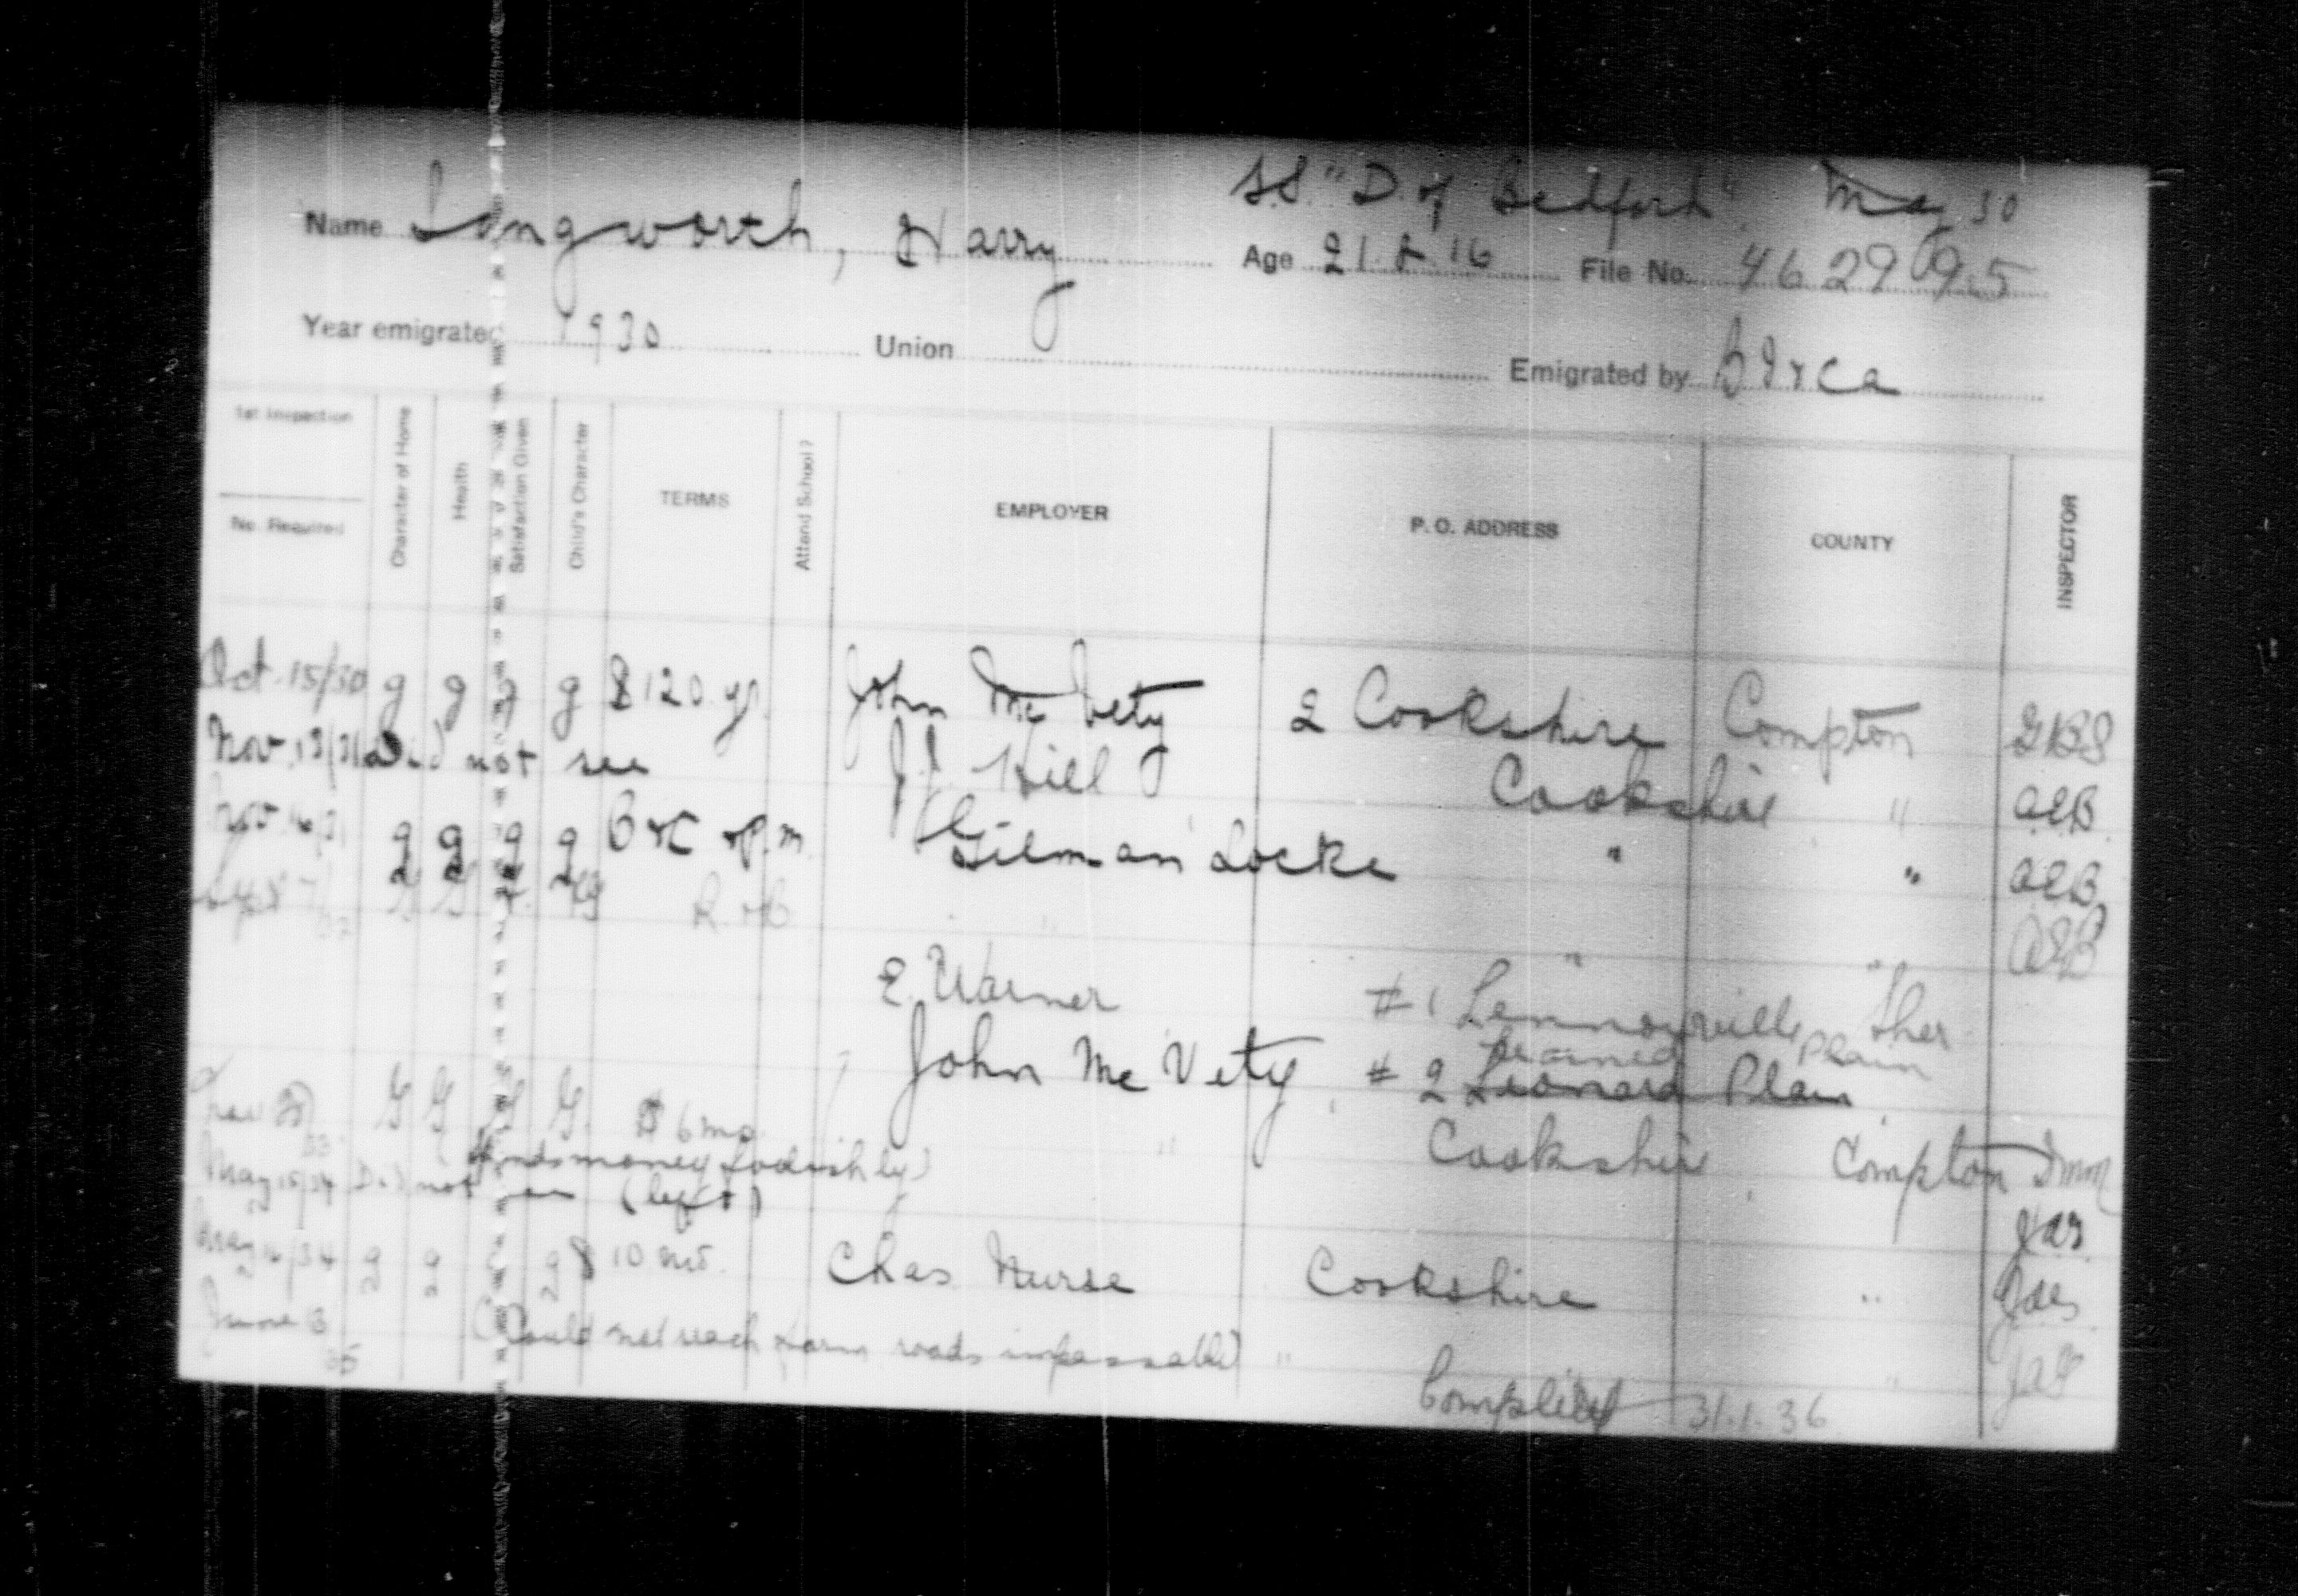 S.S. "D. of Bedford". May 30
Name Longworth, Harry Age 21.8.16 File No. 462909.5
Year emigrated 1930 Union Emigrated by
1st Inspection
No. Required
Character of Home
Health
Satisfaction Given
Child's Character
TERMS
Attend School?
EMPLOYER
P. O. ADDRESS
COUNTY
INSPECTOR
Oct. 15/30 g g g g $120 yr. John McVety 2 Cookshire Compton GBS
Nov. 13/31 Did not see Hill Cookshire " OEB
g g g g Gilman Locke " " OEB
Sept G G G " " " OEB
E. Warner #1 Lennoxville Sher
Plain
John McVety, #2 Leonard Plain
G G G G $6 mo " Cookshire, Compton
(Spends money foolishly)
May 15/34 Did not see (left)
May 16/34 g g g $10 mo. Chas Nurse Cookshire "
June 6 35 (Could not reach farm roads impassable) " "
Completed 31.1.36